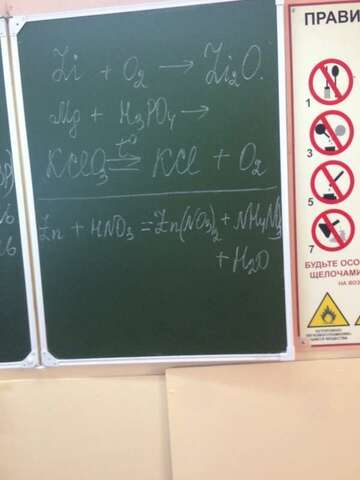 Li + O₂ → Li₂O.
Mg + H₃PO₄ →
KClO₃ t° ⇌ KCl + O₂
Zn + HNO₃ = Zn(NO₃)₂ + NH₄NO₃
+ H₂O
ПРАВИ
1
3
5
7
БУДЬТЕ ОСО
ЩЕЛОЧАМИ
НА ВОЗ